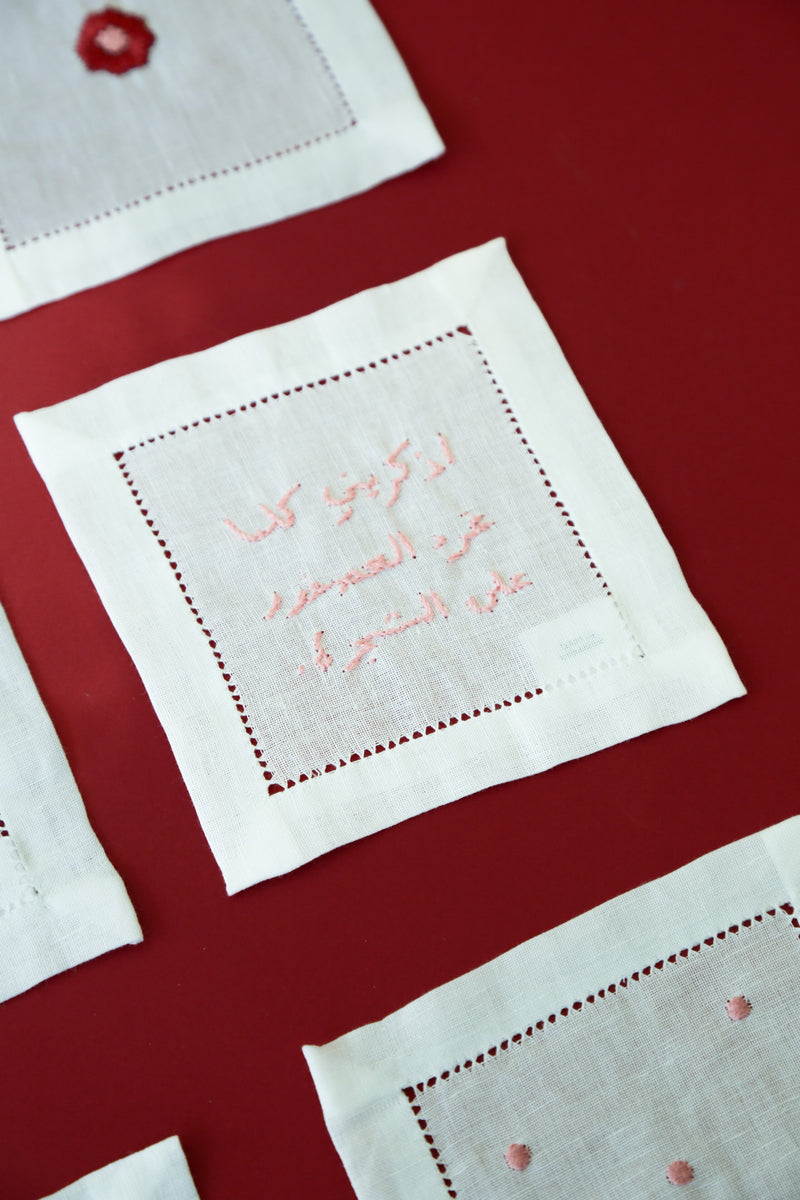 اذكريني كلما
غرد العصفور
على الشجرة.